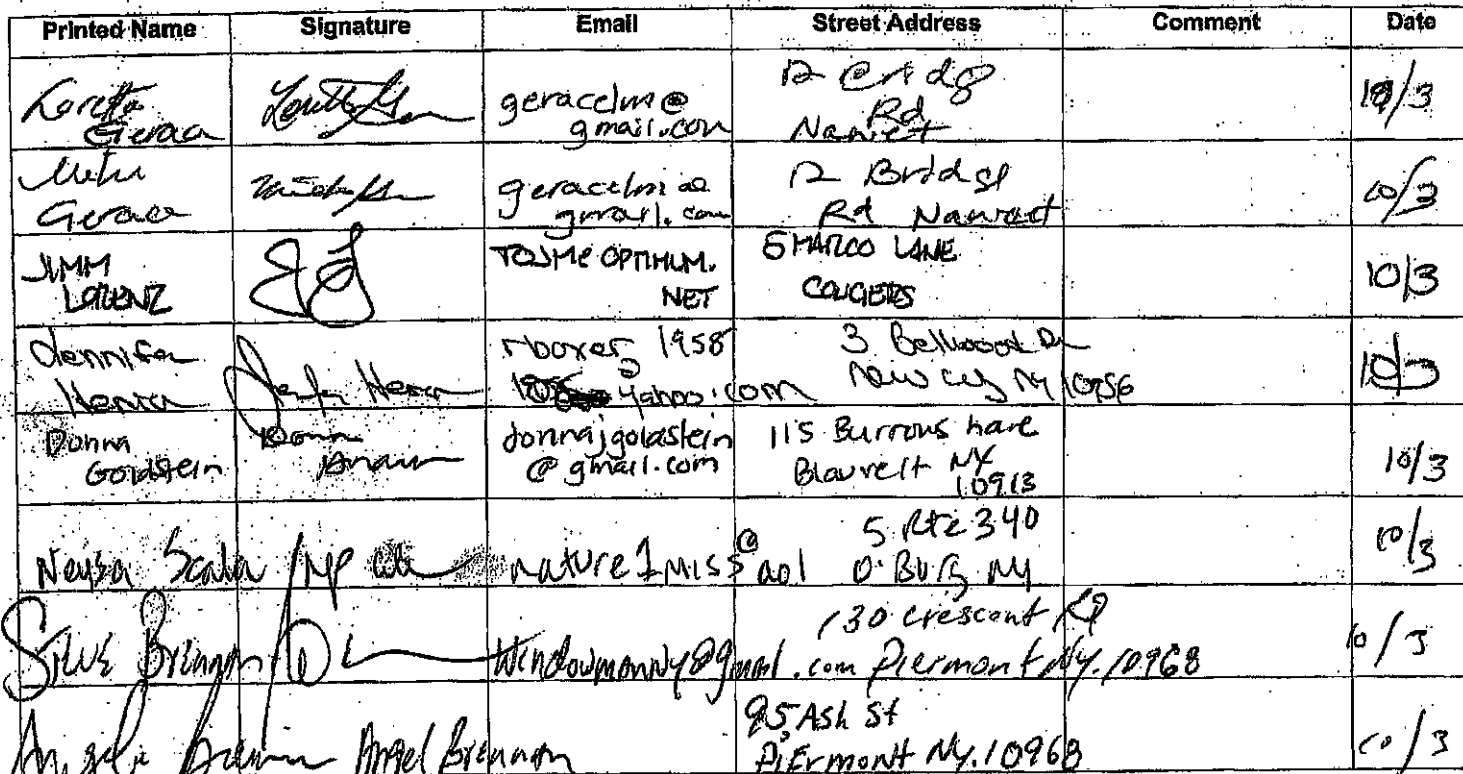 Printed Name Signature Email Street Address Comment Date
Loretta
Geraci
geracelm@
gmail.com
Rd
10/3
Geraci
gmail.com
12 Bridge
Rd Nanuet
10/3
JIMM
LORENZ
TOJM@ OPTIMUM.
NET
5 MARCO LANE
CONGERS
10/3
Jennifer
rboxer 1958
yahoo.com
3 Bellwood Dr
New City NY 10956
10/3
Donna
Goldstein
Donna
donnajgoldstein
@gmail.com
115 Burrows Lane
Blauvelt NY
10913
10/3
Neysa Scala
nature1miss@aol
5 Rte 340
O'Burg NY
10/3
Steve Brennan
Windowmanny@gmail.com
130 Crescent Rd
Piermont NY. 10968
10/3
Angel Brennan
95 Ash St
Piermont NY. 10968
10/3